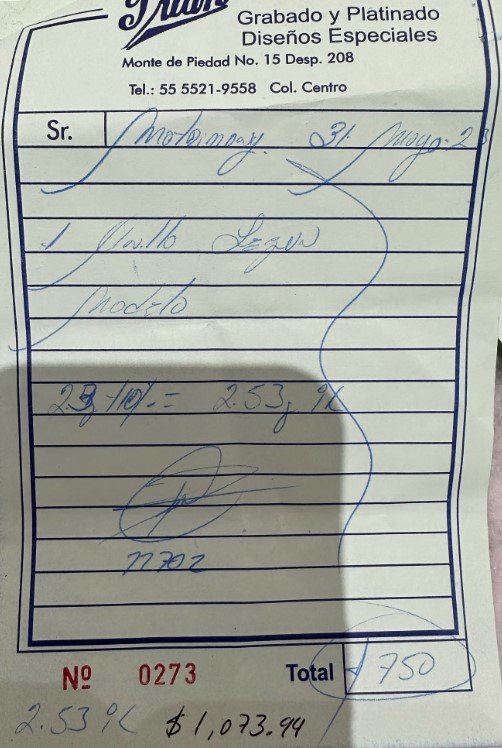 Grabado y Platinado
Diseños Especiales
Monte de Piedad No. 15 Desp. 208
Tel.: 55 5521-9558 Col. Centro
Sr. 31 Mayo-23
1 Anillo Segun
Modelo
2.3g +10% = 2.53g
Nº 0273 Total $750
2.53 $1,073.94